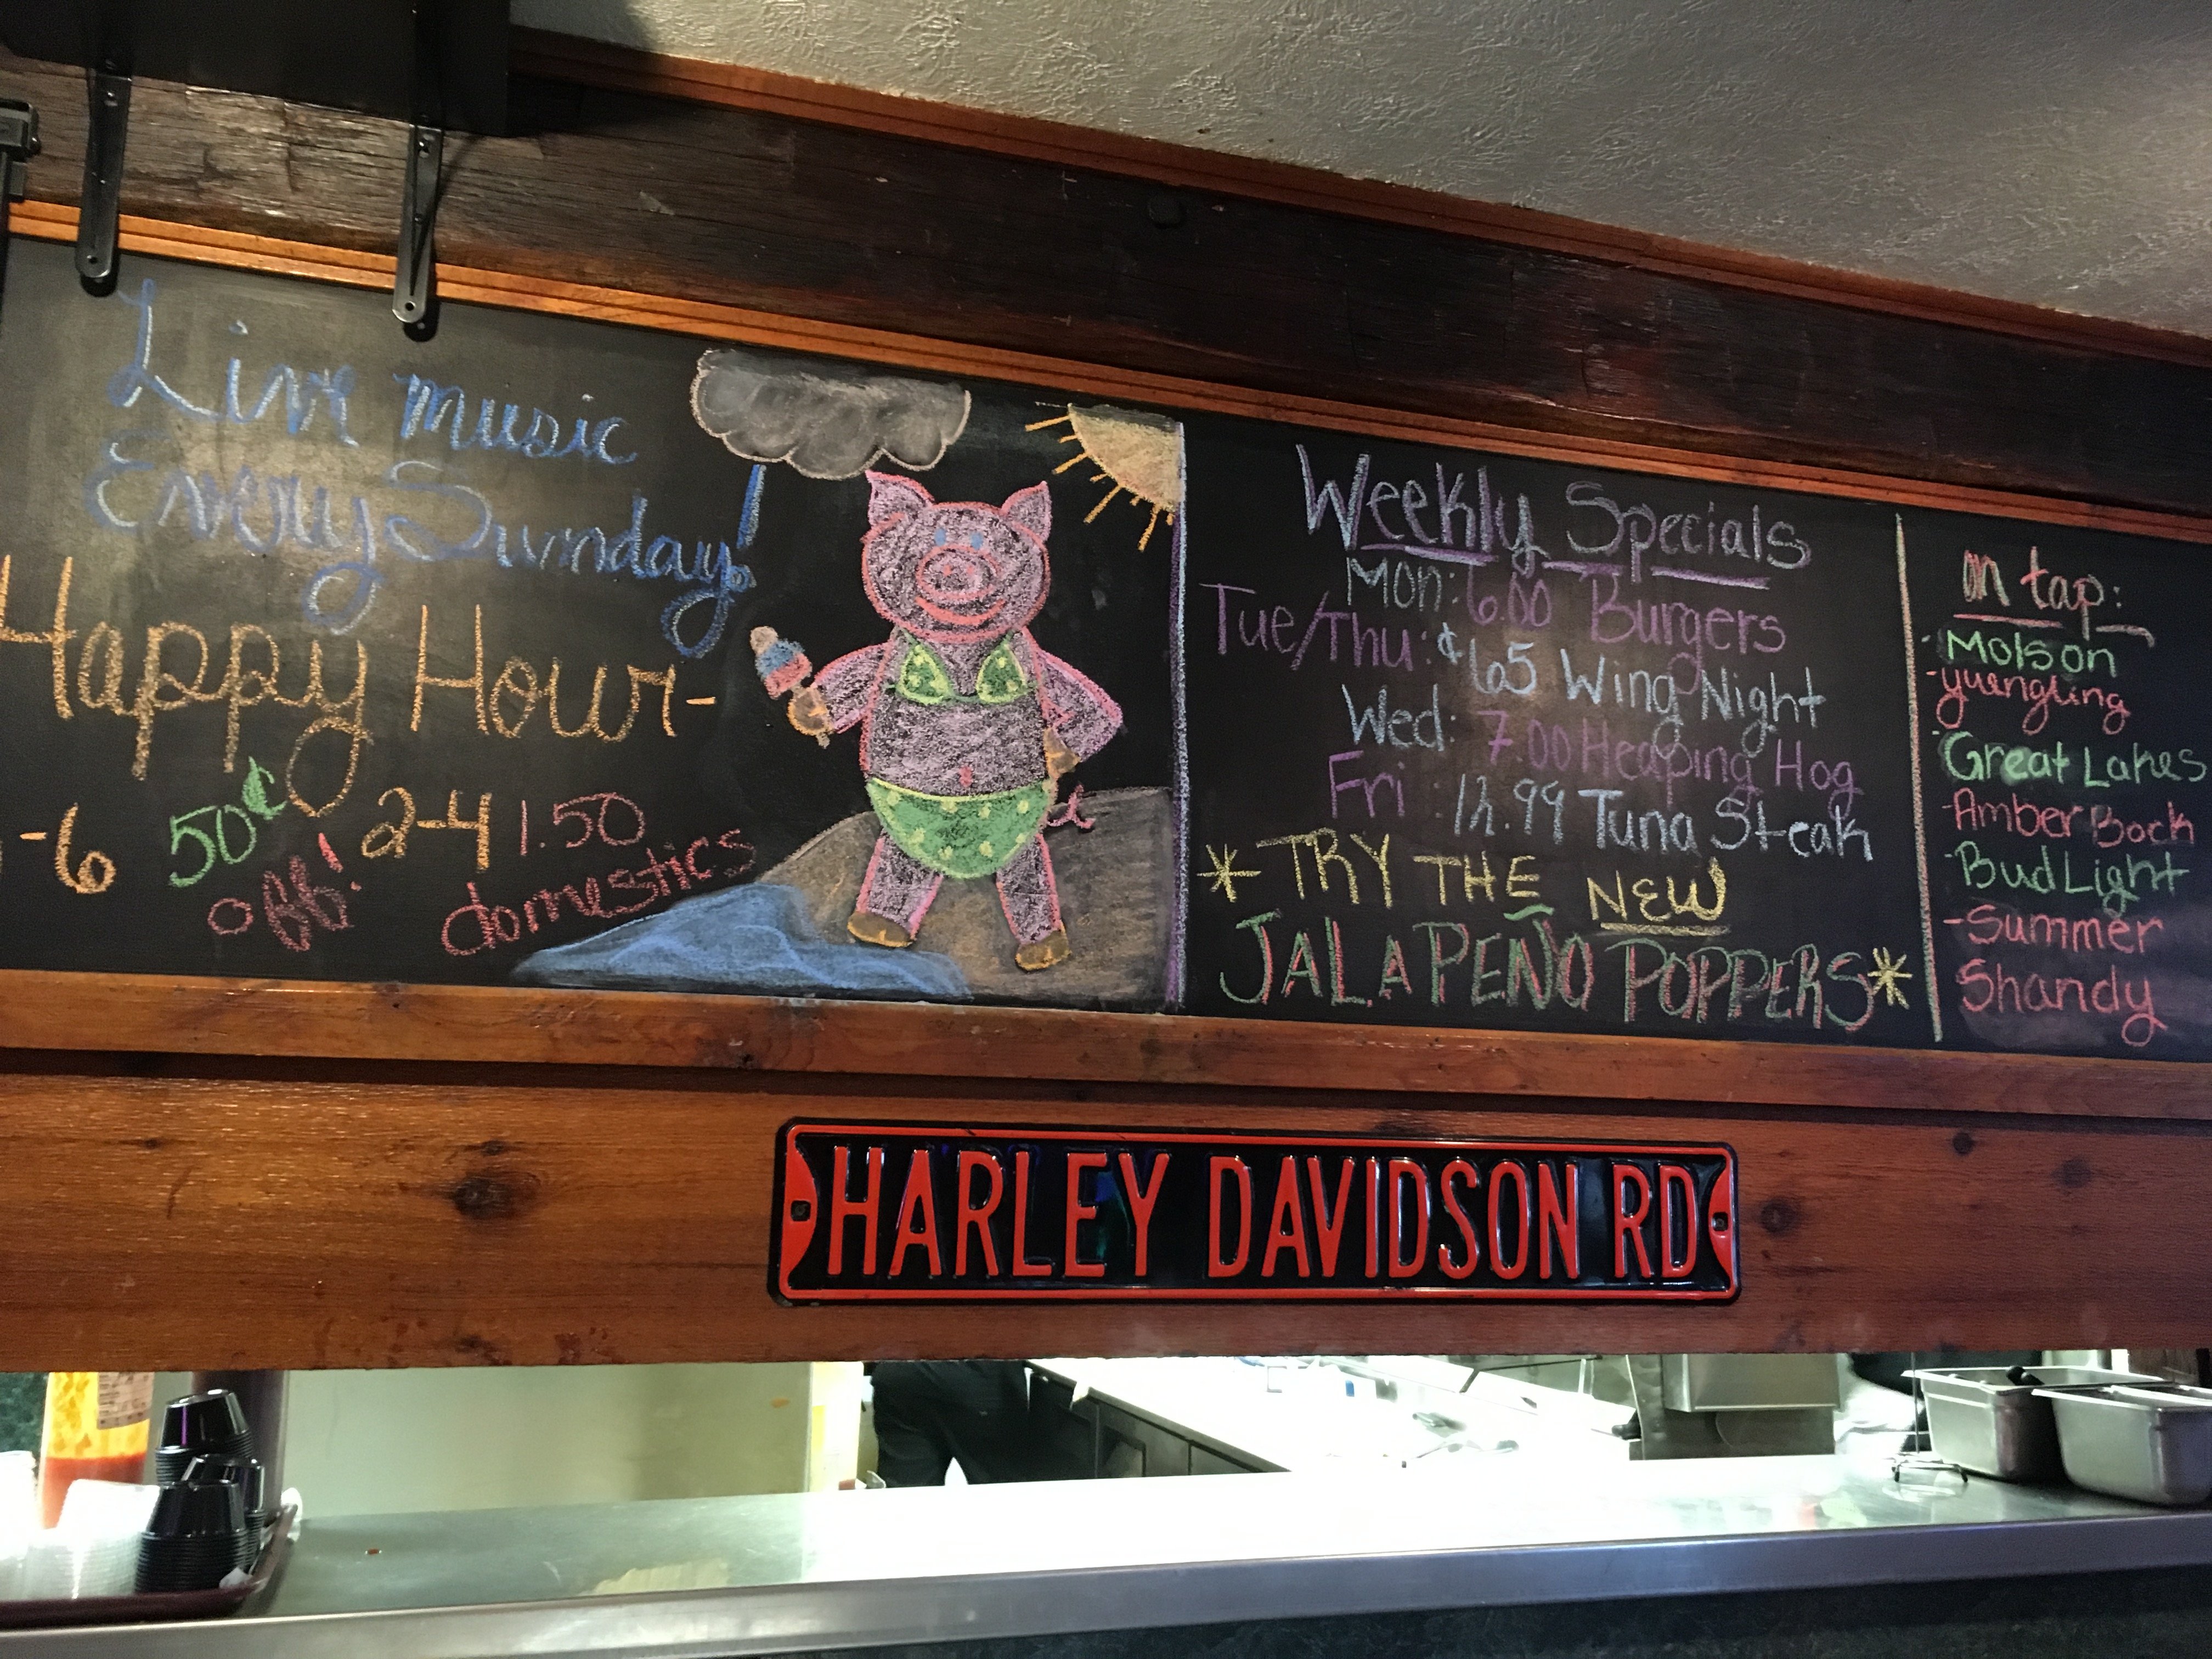 Live music
Every Sunday!
Happy Hour-
-6 50¢ off! 2-4 1.50 domestics
Weekly Specials
Mon: 6.00 Burgers
Tue/Thu: ¢65 Wing Night
Wed: 7.00 Heaping Hog
Fri: 12.99 Tuna Steak
*TRY THE NEW
JALAPEÑO POPPERS*
on tap:
-Molson
-yuengling
-Great Lakes
-Amber Bock
-Bud Light
-Summer
Shandy
HARLEY DAVIDSON RD